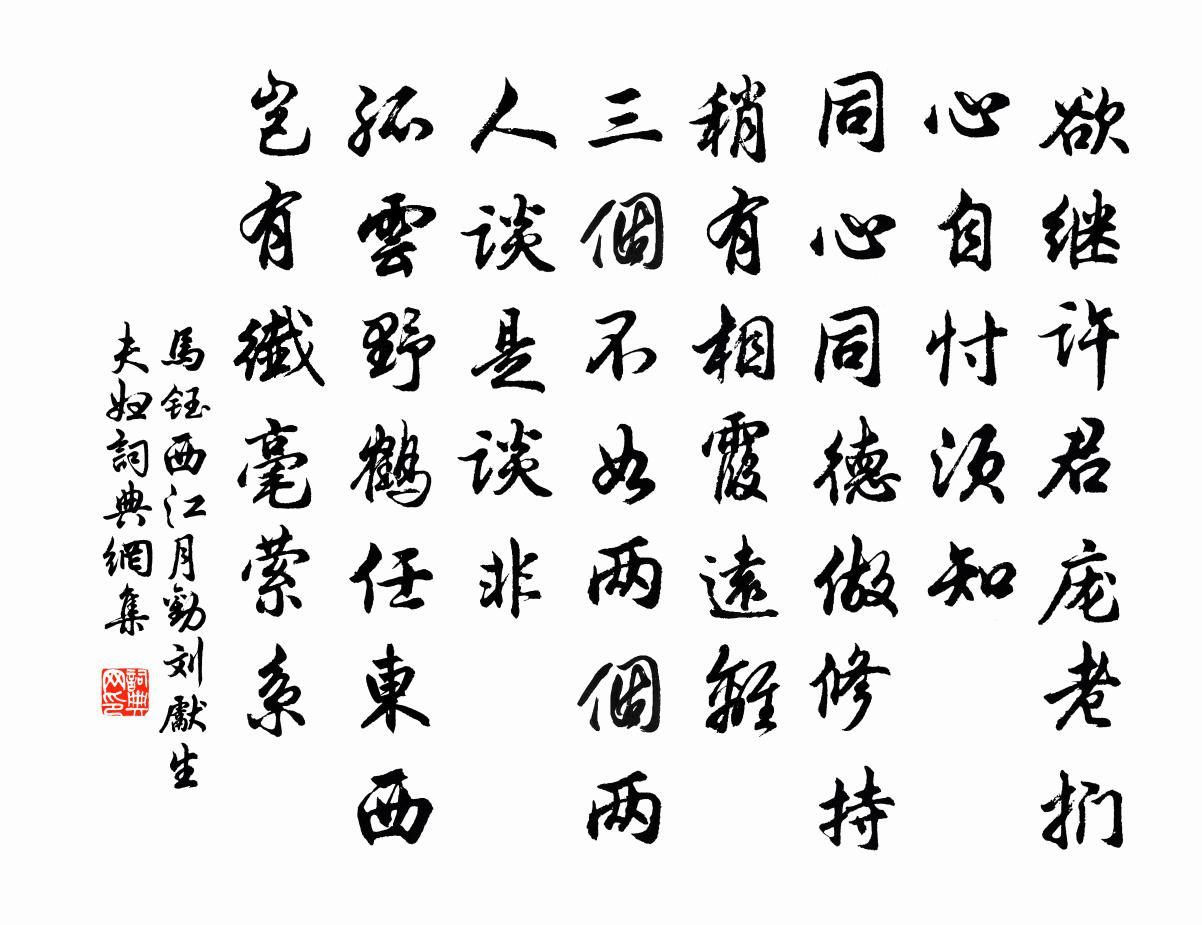 欲继许君庞老扪
心自忖须知
同心同德做修持
稍有相霞远離
三個不如两個两
人谈是谈非
孤雲野鹤任東西
岂有纖毫萦系
馬钰西江月勸刘獻生
夫妇詞典網集
詞典网印